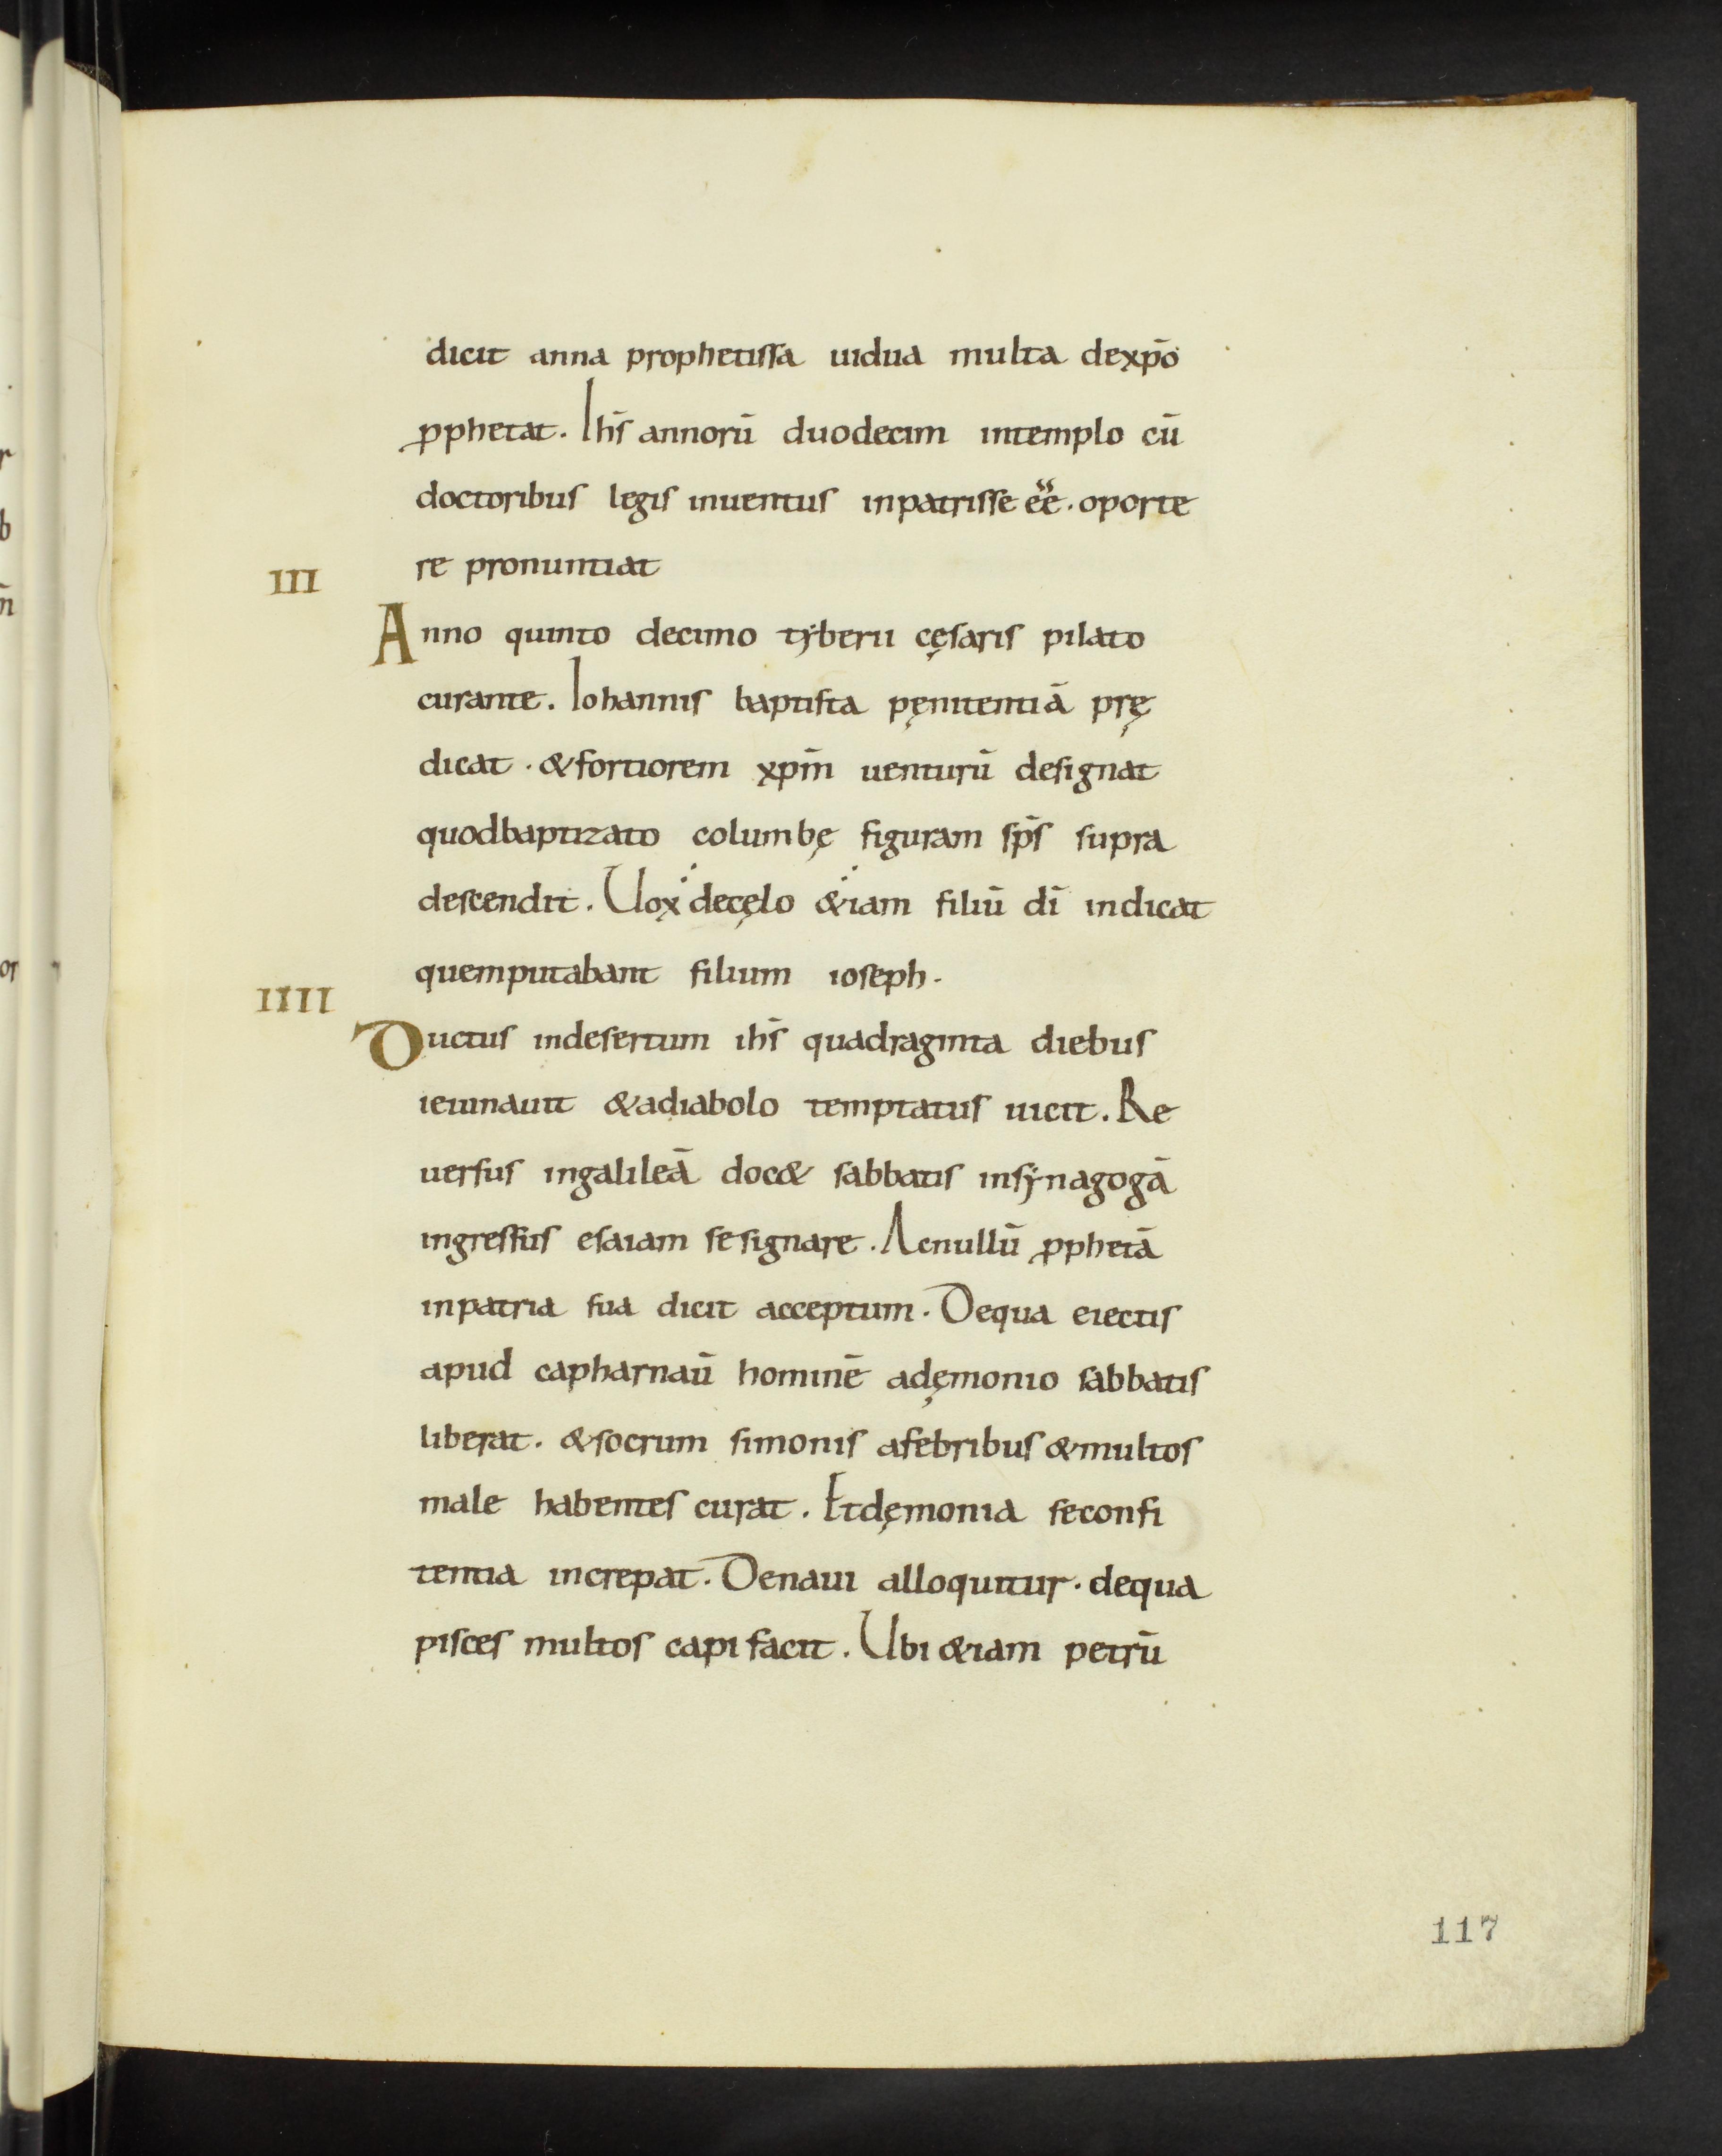 dicit anna prophetissa uidua multa dexp̄o
ꝓphetat. Ihs̄ annorū duodecim intemplo cū
doctoribus legis inuentus inpatrisse ēē. oporte
re pronuntiat
III
Anno quinto decimo tẏberii cęsaris pilato
curante. Iohannis baptista pęnitentiā prę
dicat. &fortiorem xpm̄ uenturū designat
quodbaptizato columbę figuram sp̄s supra
descendit. Uox decęlo &iam filiū dī indicat
quemputabant filium ioseph.
IIII
Ductus indesertum ihs̄ quadraginta diebus
ieiunauit &adiabolo temptatus uicit. Re
uersus ingalileā doc& sabbatis insẏnagogā
ingressus esaiam sesignare. Acnullū ꝓphetā
inpatria sua dicit acceptum. Dequa eiectis
apud capharnaū hominē adęmonio sabbatis
liberat. &socrum simonis afebribus &multos
male habentes curat. Etdęmonia seconfi
tentia increpat. Denaui alloquitur. dequa
pisces multos capi facit. Ubi &iam petrū
117